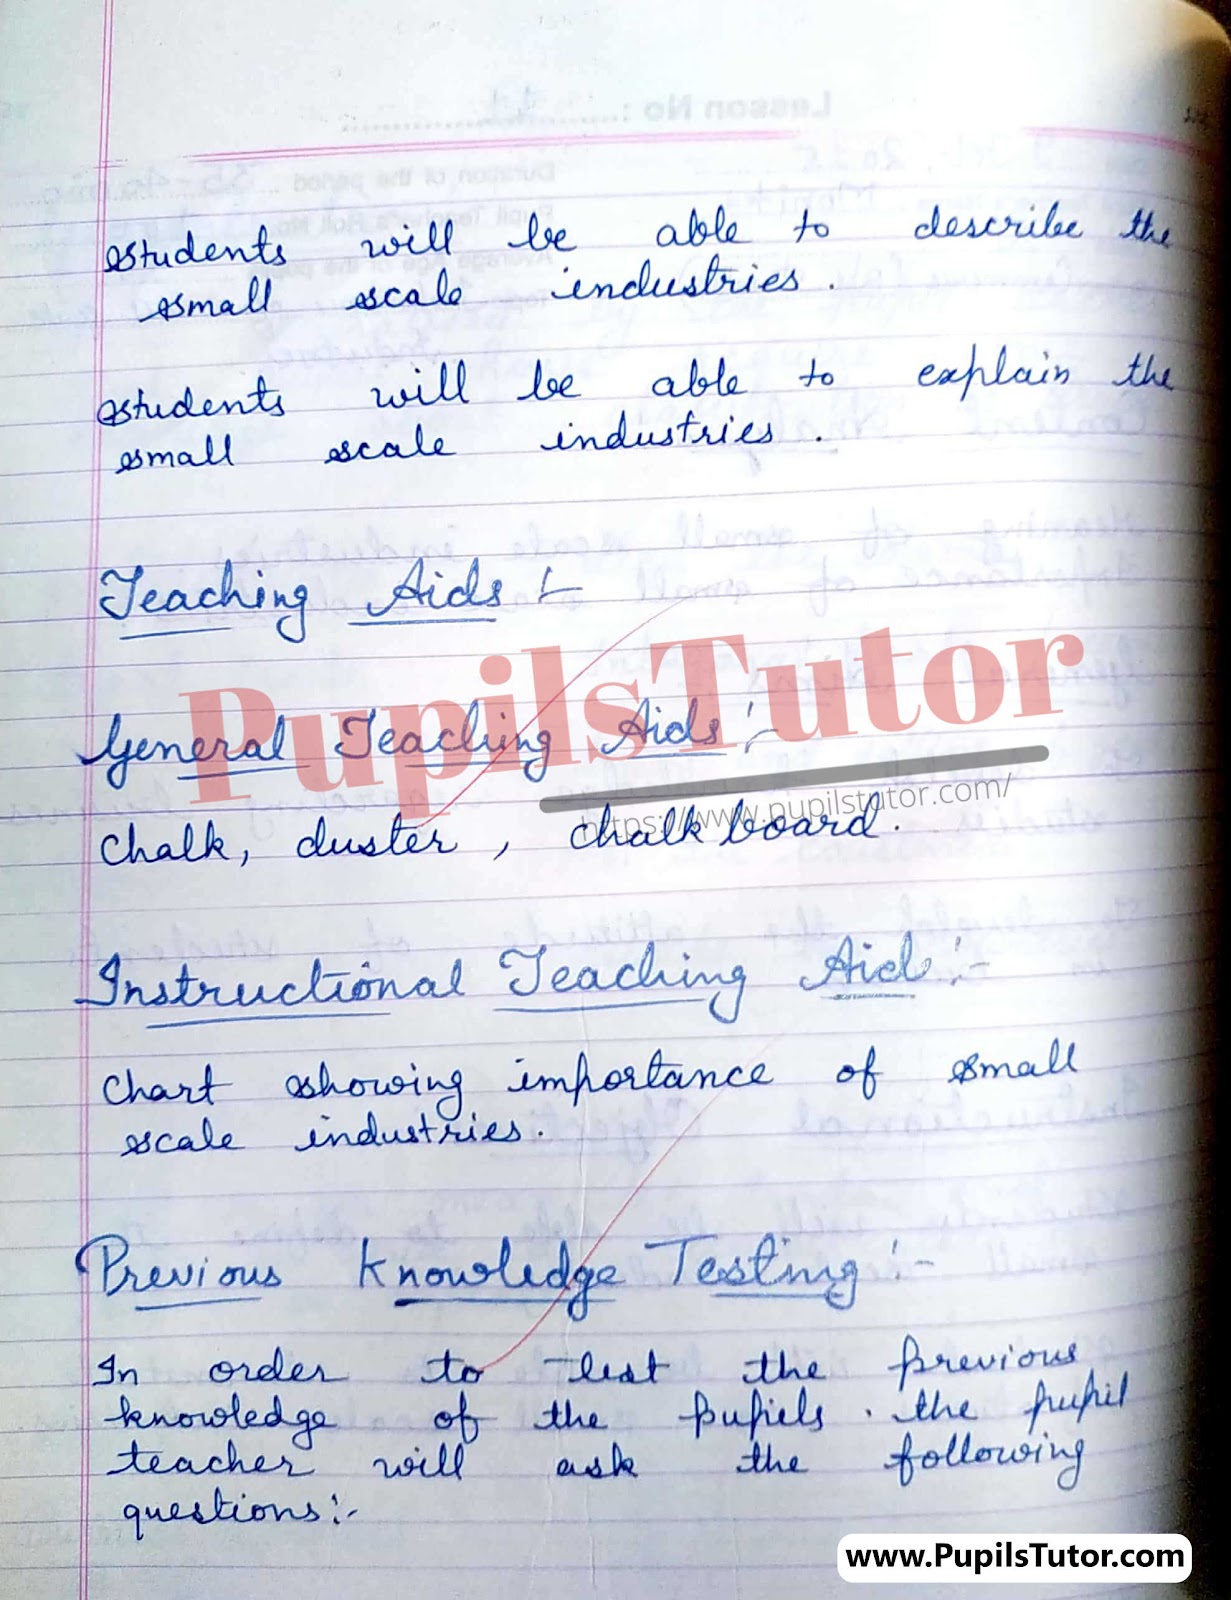 students will be able to describe the
small scale industries.
students will be able to explain the
small scale industries.
Teaching Aids :-
PupilsTutor
General Teaching Aids :-
https://www.pupilstutor.com/
Chalk, duster, chalk board.
Instructional Teaching Aid :-
Chart showing importance of small
scale industries.
Previous Knowledge Testing :-
In order to test the previous
knowledge of the pupils. the pupil
teacher will ask the following
questions :-
www.PupilsTutor.com